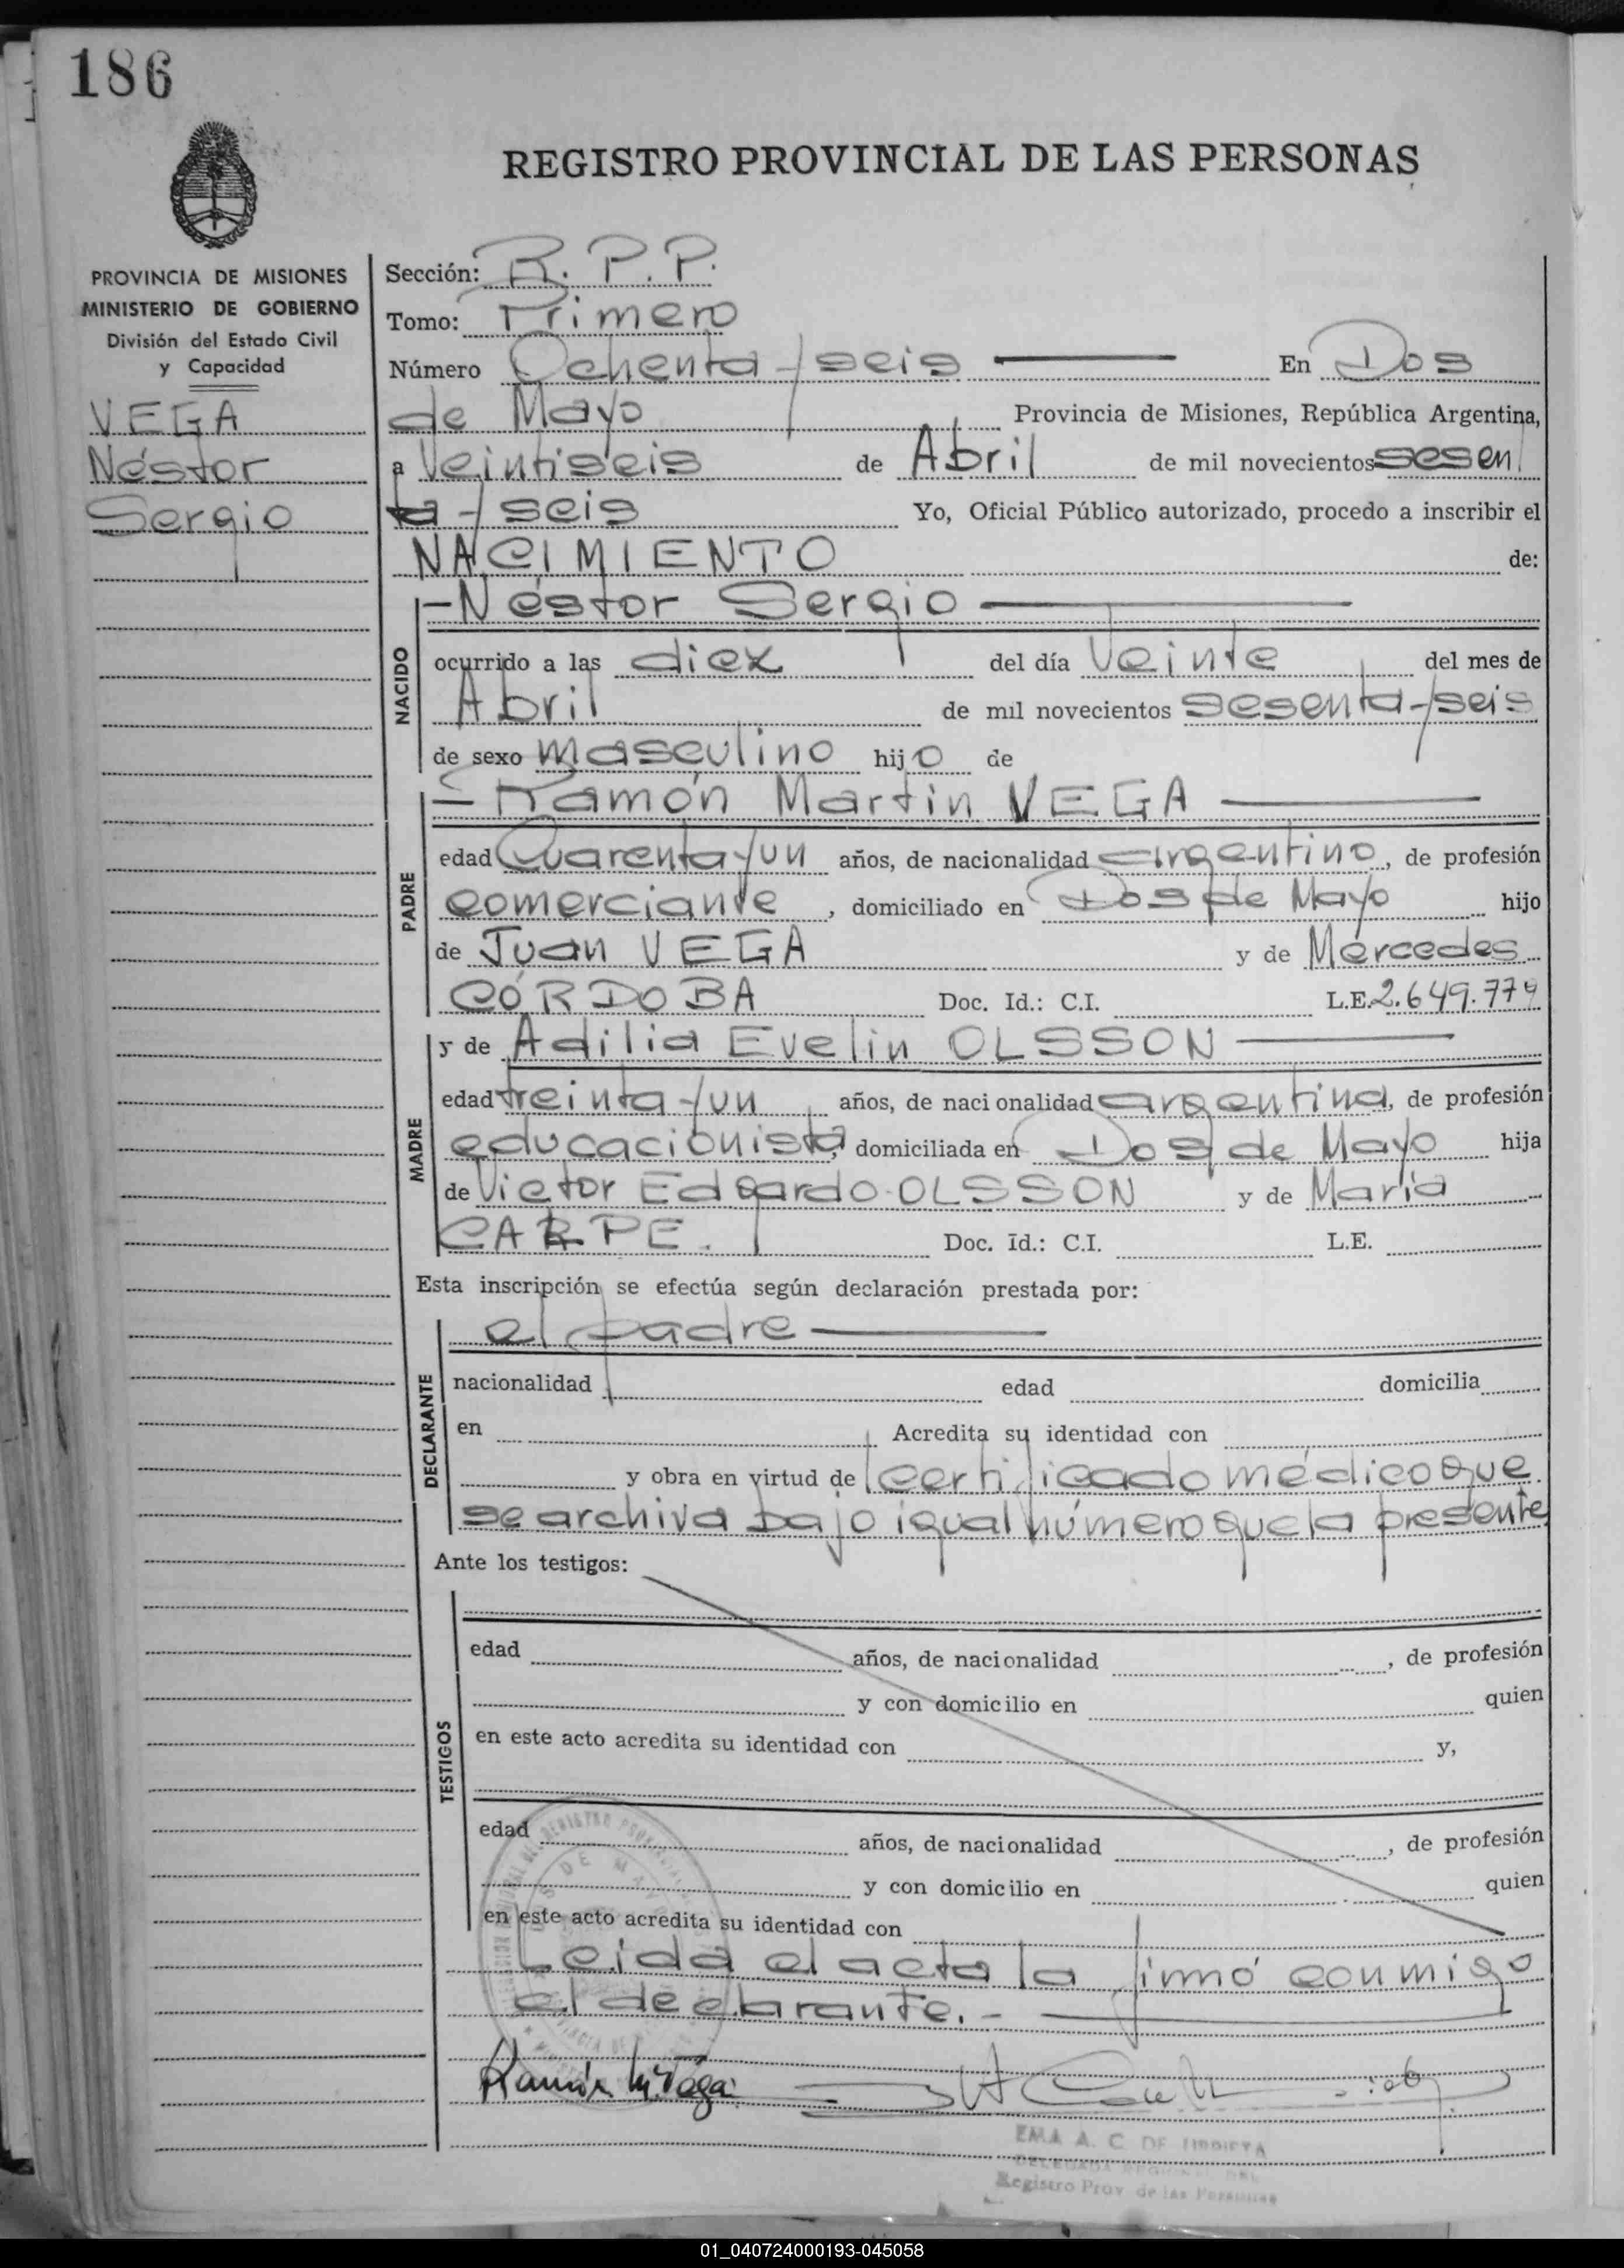 186
REGISTRO PROVINCIAL DE LAS PERSONAS
PROVINCIA DE MISIONES
MINISTERIO DE GOBIERNO
División del Estado Civil
y Capacidad
VEGA
Néstor
Sergio
Sección: R. P. P.
Tomo: Primero
Número Ochenta y seis En Dos
de Mayo Provincia de Misiones, República Argentina,
a Veintiseis de Abril de mil novecientos sesen
ta y seis Yo, Oficial Público autorizado, procedo a inscribir el
NACIMIENTO de:
NACIDO
-Néstor Sergio
ocurrido a las diez del día Veinte del mes de
Abril de mil novecientos sesenta y seis
de sexo masculino hijo de
PADRE
-Ramón Martín VEGA
edad Cuarenta y un años, de nacionalidad argentino, de profesión
comerciante, domiciliado en Dos de Mayo hijo
de Juan VEGA y de Mercedes
CÓRDOBA Doc. Id.: C.I. L.E. 2.649.779
MADRE
y de Adilia Evelin OLSSON
edad treinta y un años, de nacionalidad argentina, de profesión
educacionista, domiciliada en Dos de Mayo hija
de Victor Edgardo OLSSON y de María
CARPE. Doc. Id.: C.I. L.E.
Esta inscripción se efectúa según declaración prestada por:
DECLARANTE
el padre
nacionalidad edad domicilia
en Acredita su identidad con
y obra en virtud de certificado médico que
se archiva bajo igual número que la presente
Ante los testigos:
TESTIGOS
edad años, de nacionalidad , de profesión
y con domicilio en quien
en este acto acredita su identidad con y,
edad años, de nacionalidad , de profesión
y con domicilio en quien
en este acto acredita su identidad con
Leída el acta la firmó conmigo
el declarante.-
Ramón M. Vega
EMA A. C. DE
DELEGADA REGIONAL DEL
Registro Prov. de las Personas
01_040724000193-045058